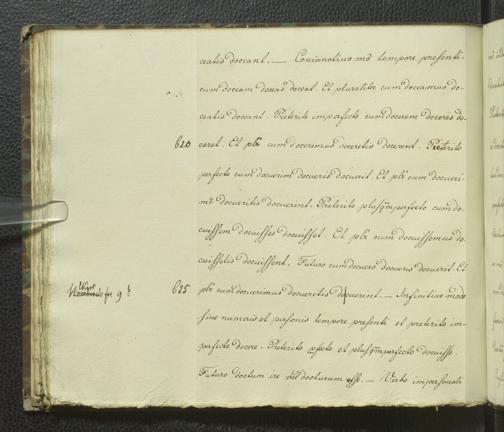 ceatis doceant. — Coniunctivo mō tempore presenti
cum doceam doceas doceat. Et pluraliter cum doceamus do-
ceatis doceant. Preterito imperfecto cum docerem doceres do-
620 ceret. Et plr cum doceremus doceretis docerent. Preterito
perfecto cum docuerim docueris docuerit. Et plr cum docueri-
m9 docueritis docuerint. Preterito plusqm̄perfecto cum do-
cuissem docuisses docuisset. Et plr cum docuissemus do-
cuissetis docuissent. Futuro cum docuero docueris docuerit. Et
625 plr cum docuerimus docueritis docuerint. — Infinitivo modo
sine numeris et personis tempore presenti et preterito im-
perfecto docere. Preterito pfecto et plusqm̄perfecto docuisse.
Futuro doctum ire vel docturum esse. — Verbo impersonali